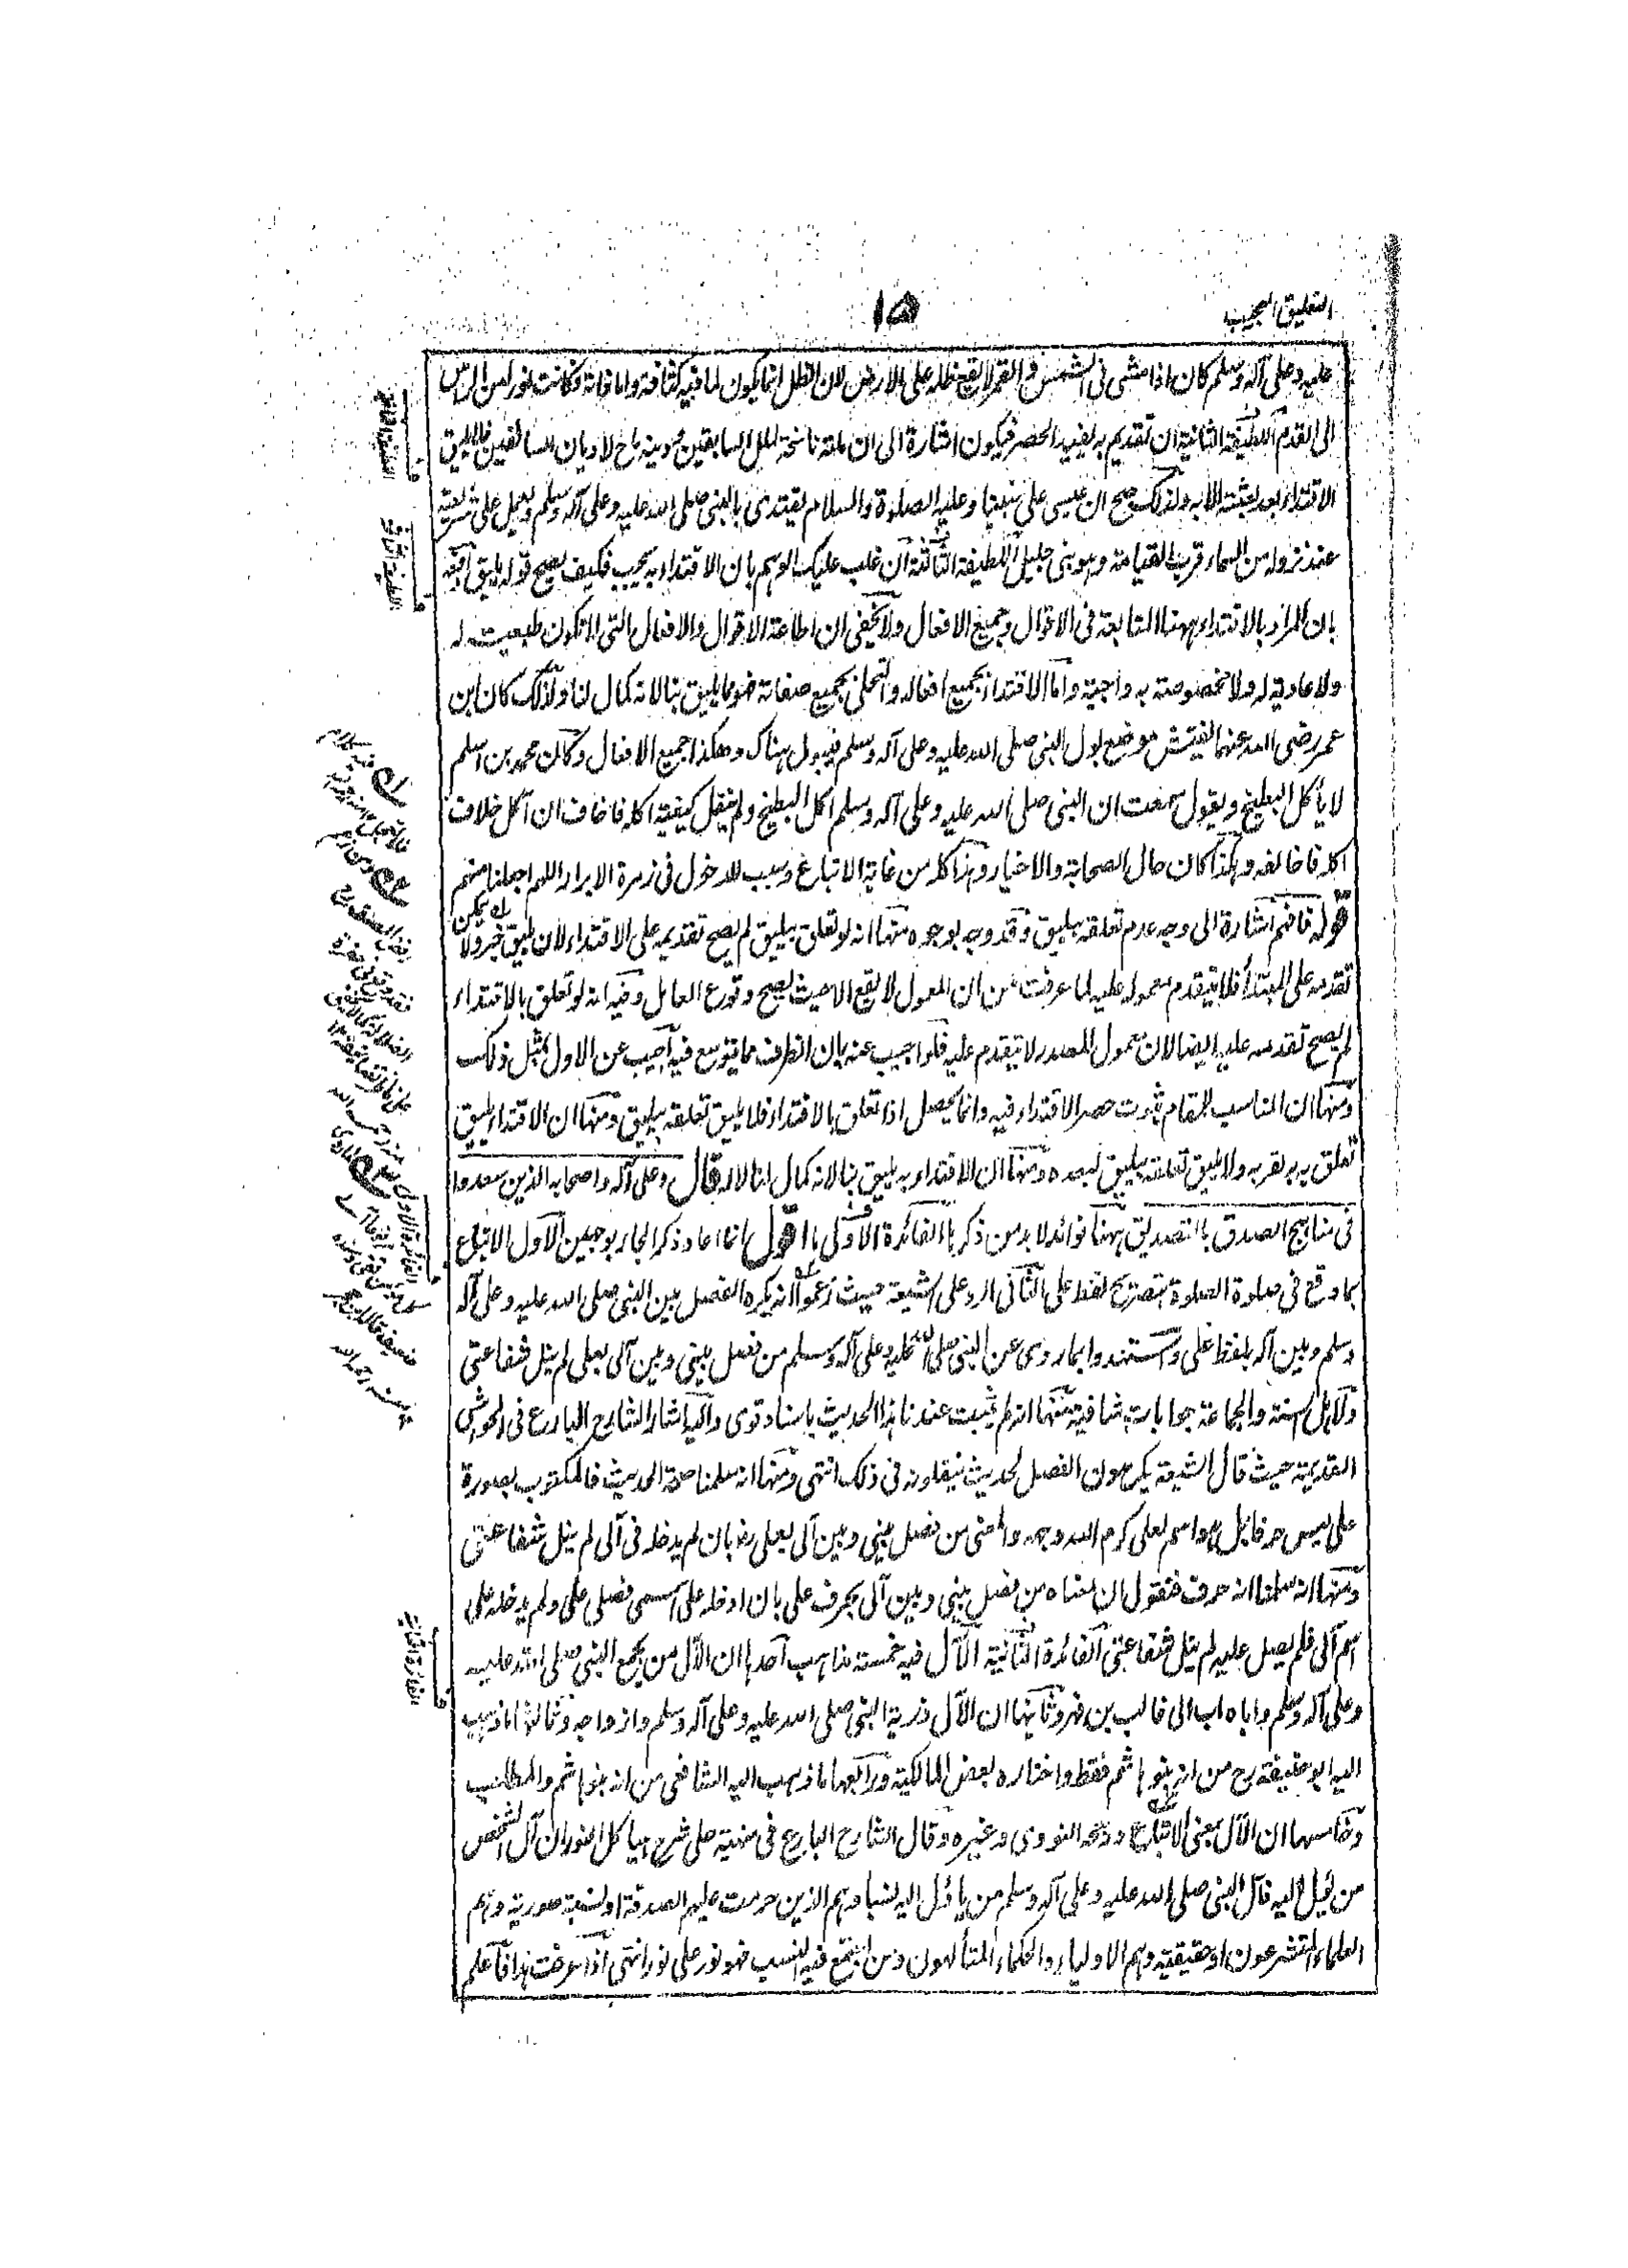 التعليق العجيب
١٥
عليه وعلى آله وسلم كان اذا مشى فى الشمس والقمر لا يقع ظله على الارض لان الظل انما يكون لما فيه كثافة واما ذاته فكانت نورا من الراس
الى القدم اللطيفة الثانية ان تقديم به يفيد الحصر فيكون اشارة الى ان ملته ناسخة لملل السابقين ودينه ماح لاديان السالفين فلا يليق
الاقتداء بعد بعثته الا به ولذلك صح ان عيسى على نبينا وعليه الصلوة والسلام يقتدى بالنبى صلى الله عليه وعلى آله وسلم ويعمل على شريعته
عند نزوله من السماء قريب القيامة وهو نبى جليل اللطيفة الثالثة ان غلب عليك الوهم بان الاقتداء به يجب فكيف يصح قوله يليق
بان المراد بالاقتداء ههنا المتابعة فى الاقوال وجميع الافعال ولا يخفى ان اطاعة الاقوال والافعال التى لا تكون طبعيت له
ولا عادية له ولا مخصوصة به واجبة واما الاقتداء بجميع افعاله والتحلى بجميع صفاته فهو مما يليق بنا لانه كمال لنا ولذلك كان ابن
عمر رضى الله عنهما يفتش موضع بول النبى صلى الله عليه وعلى آله وسلم فيبول هناك وهكذا جميع الافعال وكان محمد بن اسلم
لا يأكل البطيخ ويقول سمعت ان النبى صلى الله عليه وعلى آله وسلم اكل البطيخ ولم ينقل كيفية اكله فاخاف ان آكل خلاف
اكله فاخالفه وهكذا كان حال الصحابة والاخيار وهذا كله من غاية الاتباع وسبب للدخول فى زمرة الابرار اللهم اجعلنا منهم
قوله فافهم اشارة الى وجه عدم تعلقه بيليق وقد وجه بوجوه منها انه لو تعلق بيليق لم يصح تقديمه على الاقتداء لان يليق خبر ولا يمكن
تقدمه على المبتدأ فلا يتقدم معموله عليه لما عرفت من ان المعمول لا يقع الا حيث يصح وقوع العامل وفيه انه لو تعلق بالاقتداء
لم يصح تقدمه عليه ايضا لان معمول المصدر لا يتقدم عليه فلو اجيب عنه بان الظرف مما يتوسع فيه اجيب عن الاول بمثل ذلك
ومنها ان المناسب للمقام ثبوت حصر الاقتداء فيه وانما يحصل اذا تعلق بالاقتداء فلا يليق تعلقه بيليق ومنها ان الاقتداء يليق
تعلق به به لقربه ولا يليق تعلقه بيليق لبعده ومنها ان الاقتداء به يليق بنا لانه كمال لنا لا له قال وعلى آله واصحابه الذين سعدوا
فى مناهج الصدق بالتصديق ههنا فوائد لا بد من ذكرها الفائدة الاولى اقول انما اعاد ذكر الجار بوجهين الاول الاتباع
بما وقع فى صلوة الصلوة بتصريح لفظ على الثانى الرد على الشيعة حيث زعموا انه يكره الفصل بين النبى صلى الله عليه وعلى آله
وسلم وبين آله بلفظ على واستندوا بما روى عن النبى صلى الله عليه وعلى آله وسلم من فصل بينى وبين آلى بعلى لم ينل شفاعتى
ولاهل السنة والجماعة جوابات شافية منها انه لم يثبت عندنا هذا الحديث باسناد قوى واليه اشار الشارح البارع فى الحواشى
القديمة حيث قال الشيعة يكرهون الفصل لحديث ينقلونه فى ذلك انتهى ومنها انه سلمنا صحة الحديث فالمكتوب بصورة
على ليس حرفا بل هو اسم لعلى كرم الله وجهه والمعنى من فصل بينى وبين آلى بعلى رضا بان لم يدخله فى آلى لم ينل شفاعتى
ومنها انه سلمنا انه حرف فنقول ان معناه من فصل بينى وبين آلى بحرف على بان ادخله على اسمى فصلى على ولم يدخله على
اسم آلى فلم يصل عليه لم ينل شفاعتى الفائدة الثانية الآل فيه خمسة مذاهب احدها ان الآل من يجمع النبى صلى الله عليه
وعلى آله وسلم واياه اب الى غالب بن فهر وثانيها ان الآل ذرية النبى صلى الله عليه وعلى آله وسلم وازواجه وثالثها ما ذهب
اليه ابو حنيفة رح من انه بنو هاشم فقط واختاره بعض المالكية ورابعها ما ذهب اليه الشافعى من انه بنو هاشم والمطلب
وخامسها ان الآل بمعنى الاتباع ورجحه النووى وغيره وقال الشارح البارع فى منهيته على شرح هياكل النور ان آل الشخص
من يؤل اليه فآل النبى صلى الله عليه وعلى آله وسلم من يؤل اليه نسبا وهم الذين حرمت عليهم الصدقة او نسبة صورية وهم
العلماء المتشرعون او حقيقية وهم الاولياء والحكماء المتألهون ومن اجتمع فيه النسب فهو نور على نور انتهى اذا عرفت هذا فاعلم
اللطيفة الثانية
اللطيفة الثالثة
الفائدة الاولى
الفائدة الثانية